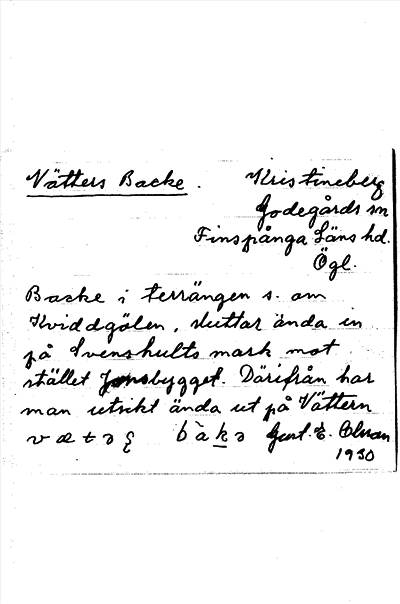 Vätters Backe. Kristineberg
Godegårds sn
Finspånga Läns hd.
Ögl.
Backe i terrängen s. om
Kviddgölen, sluttar ända in
på Svenshults mark mot
stället Jonsbygget. Därifrån har
man utsikt ända ut på Vättern
Gust. E. Olsson
1930